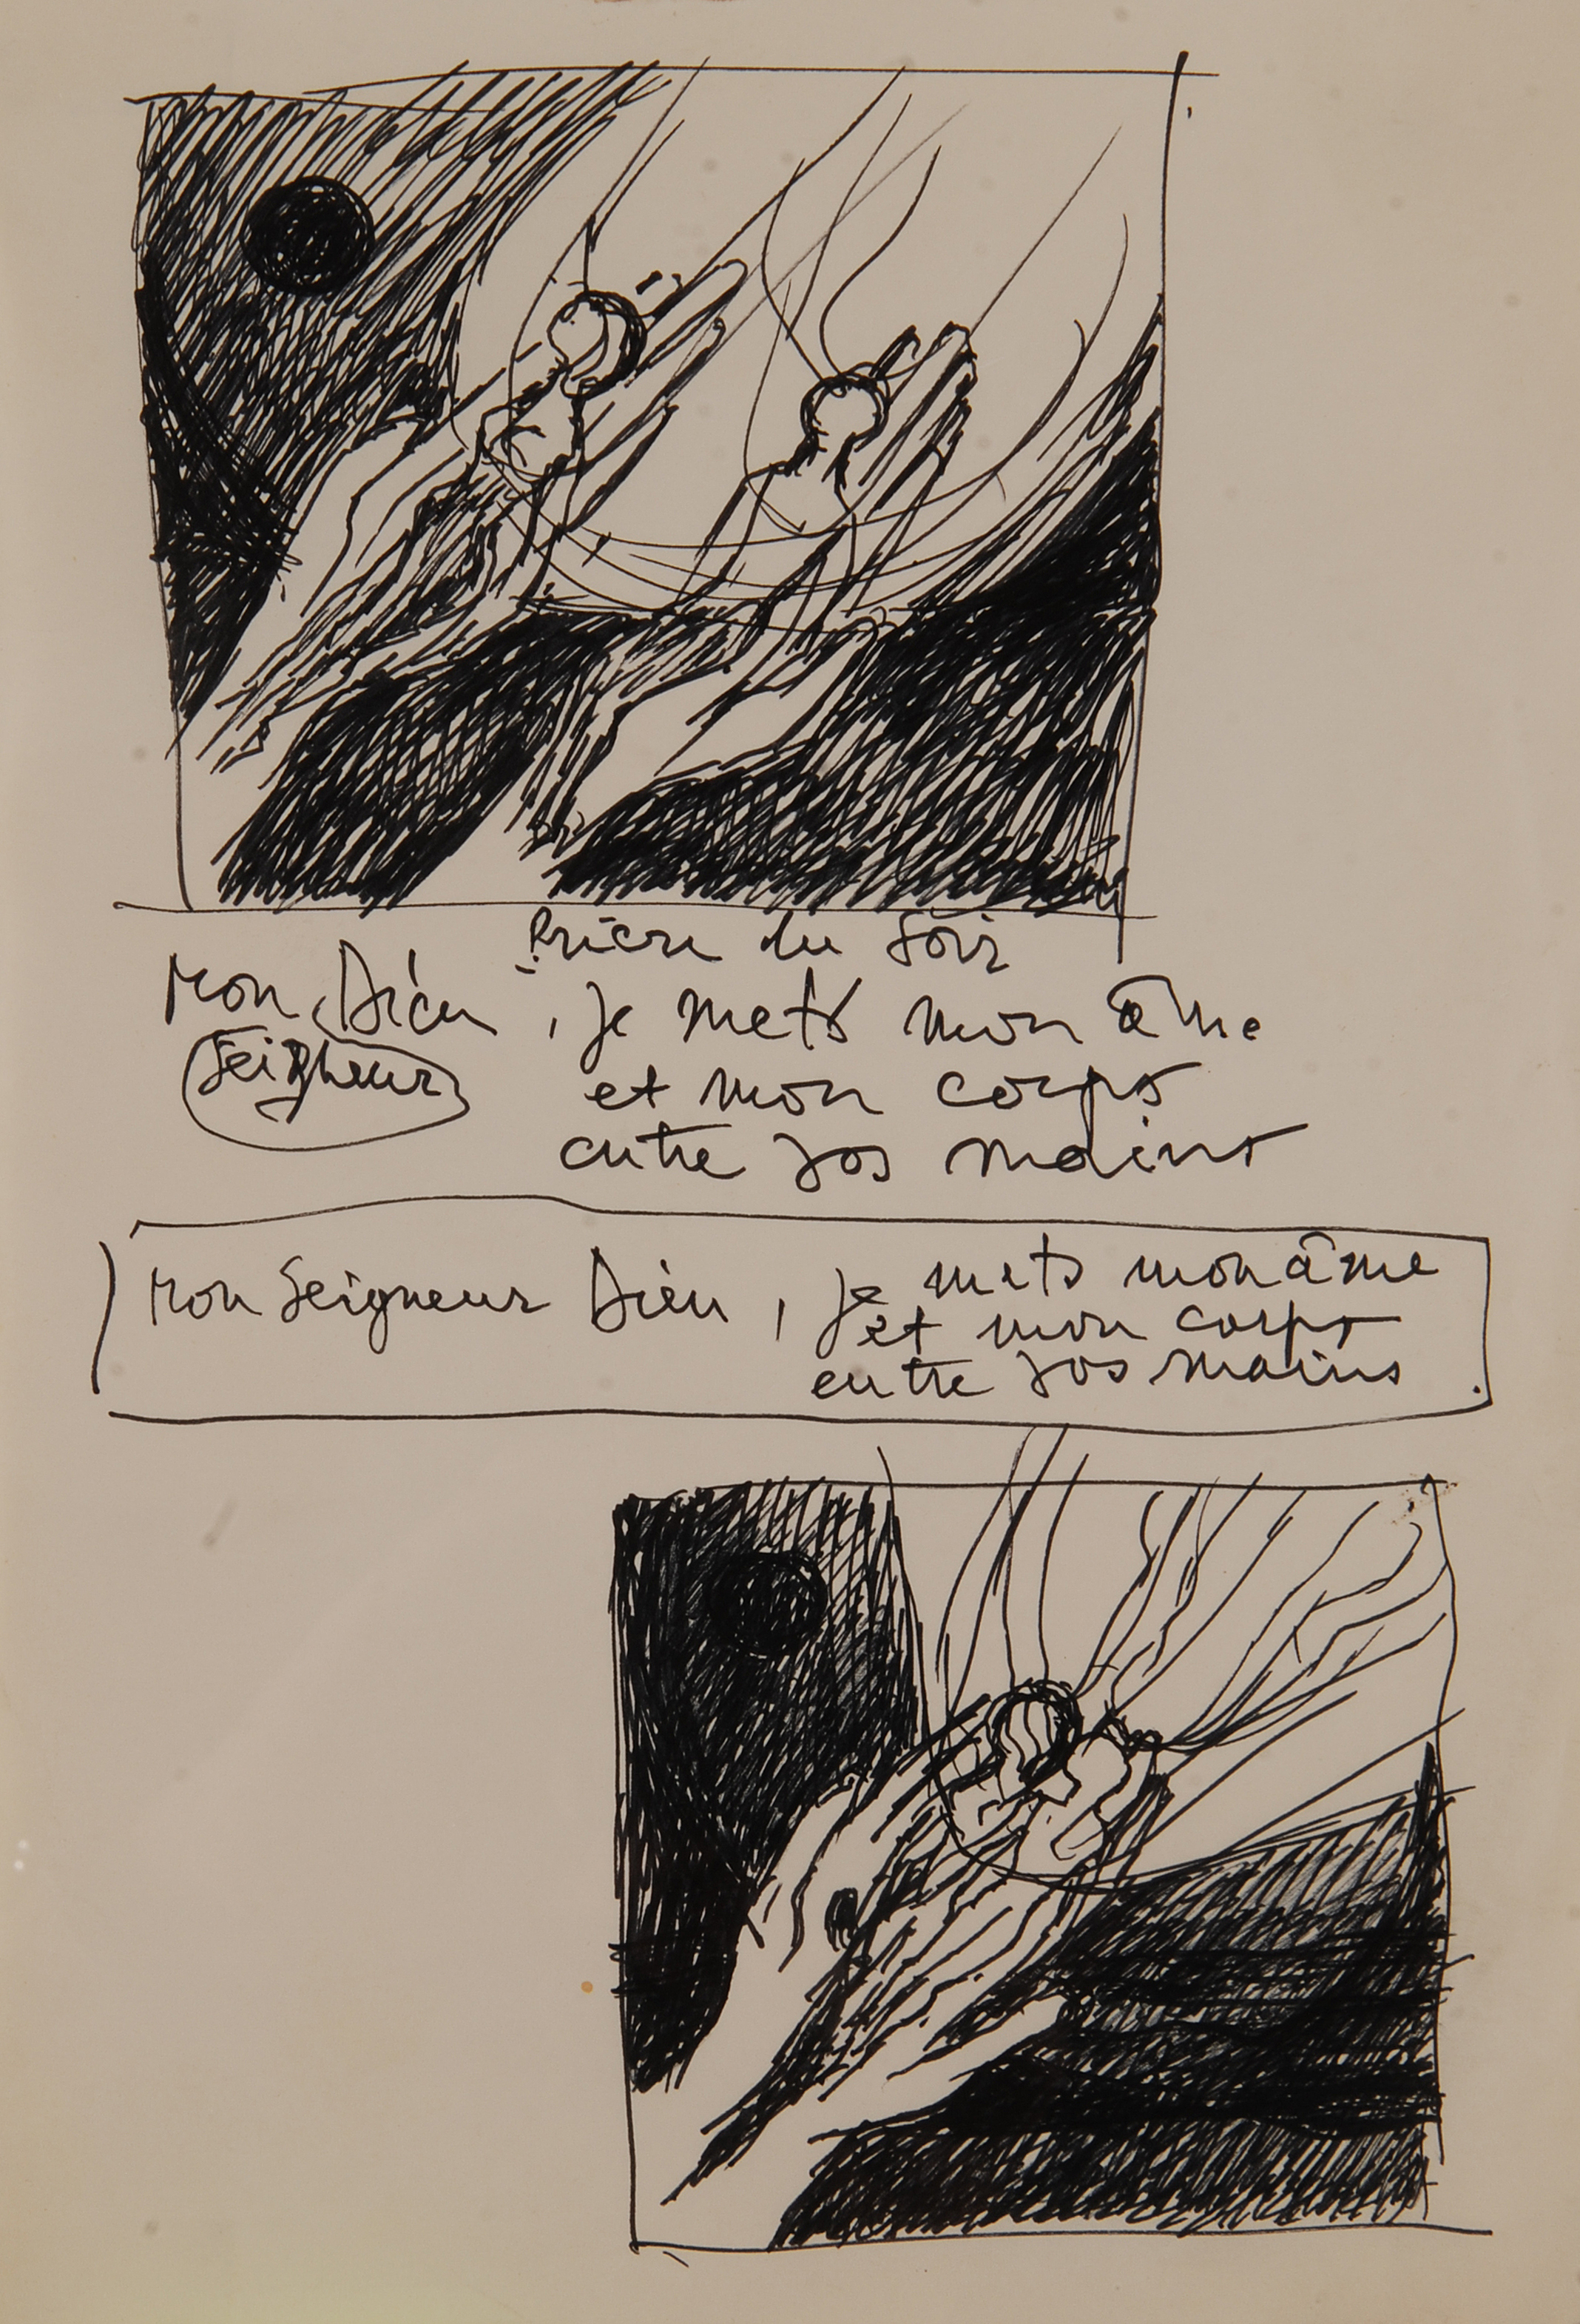 Prière du Soir
Mon Dieu, je mets mon âme
Seigneur
et mon corps
entre vos mains
Mon Seigneur Dieu, je mets mon âme
et mon corps
entre vos mains